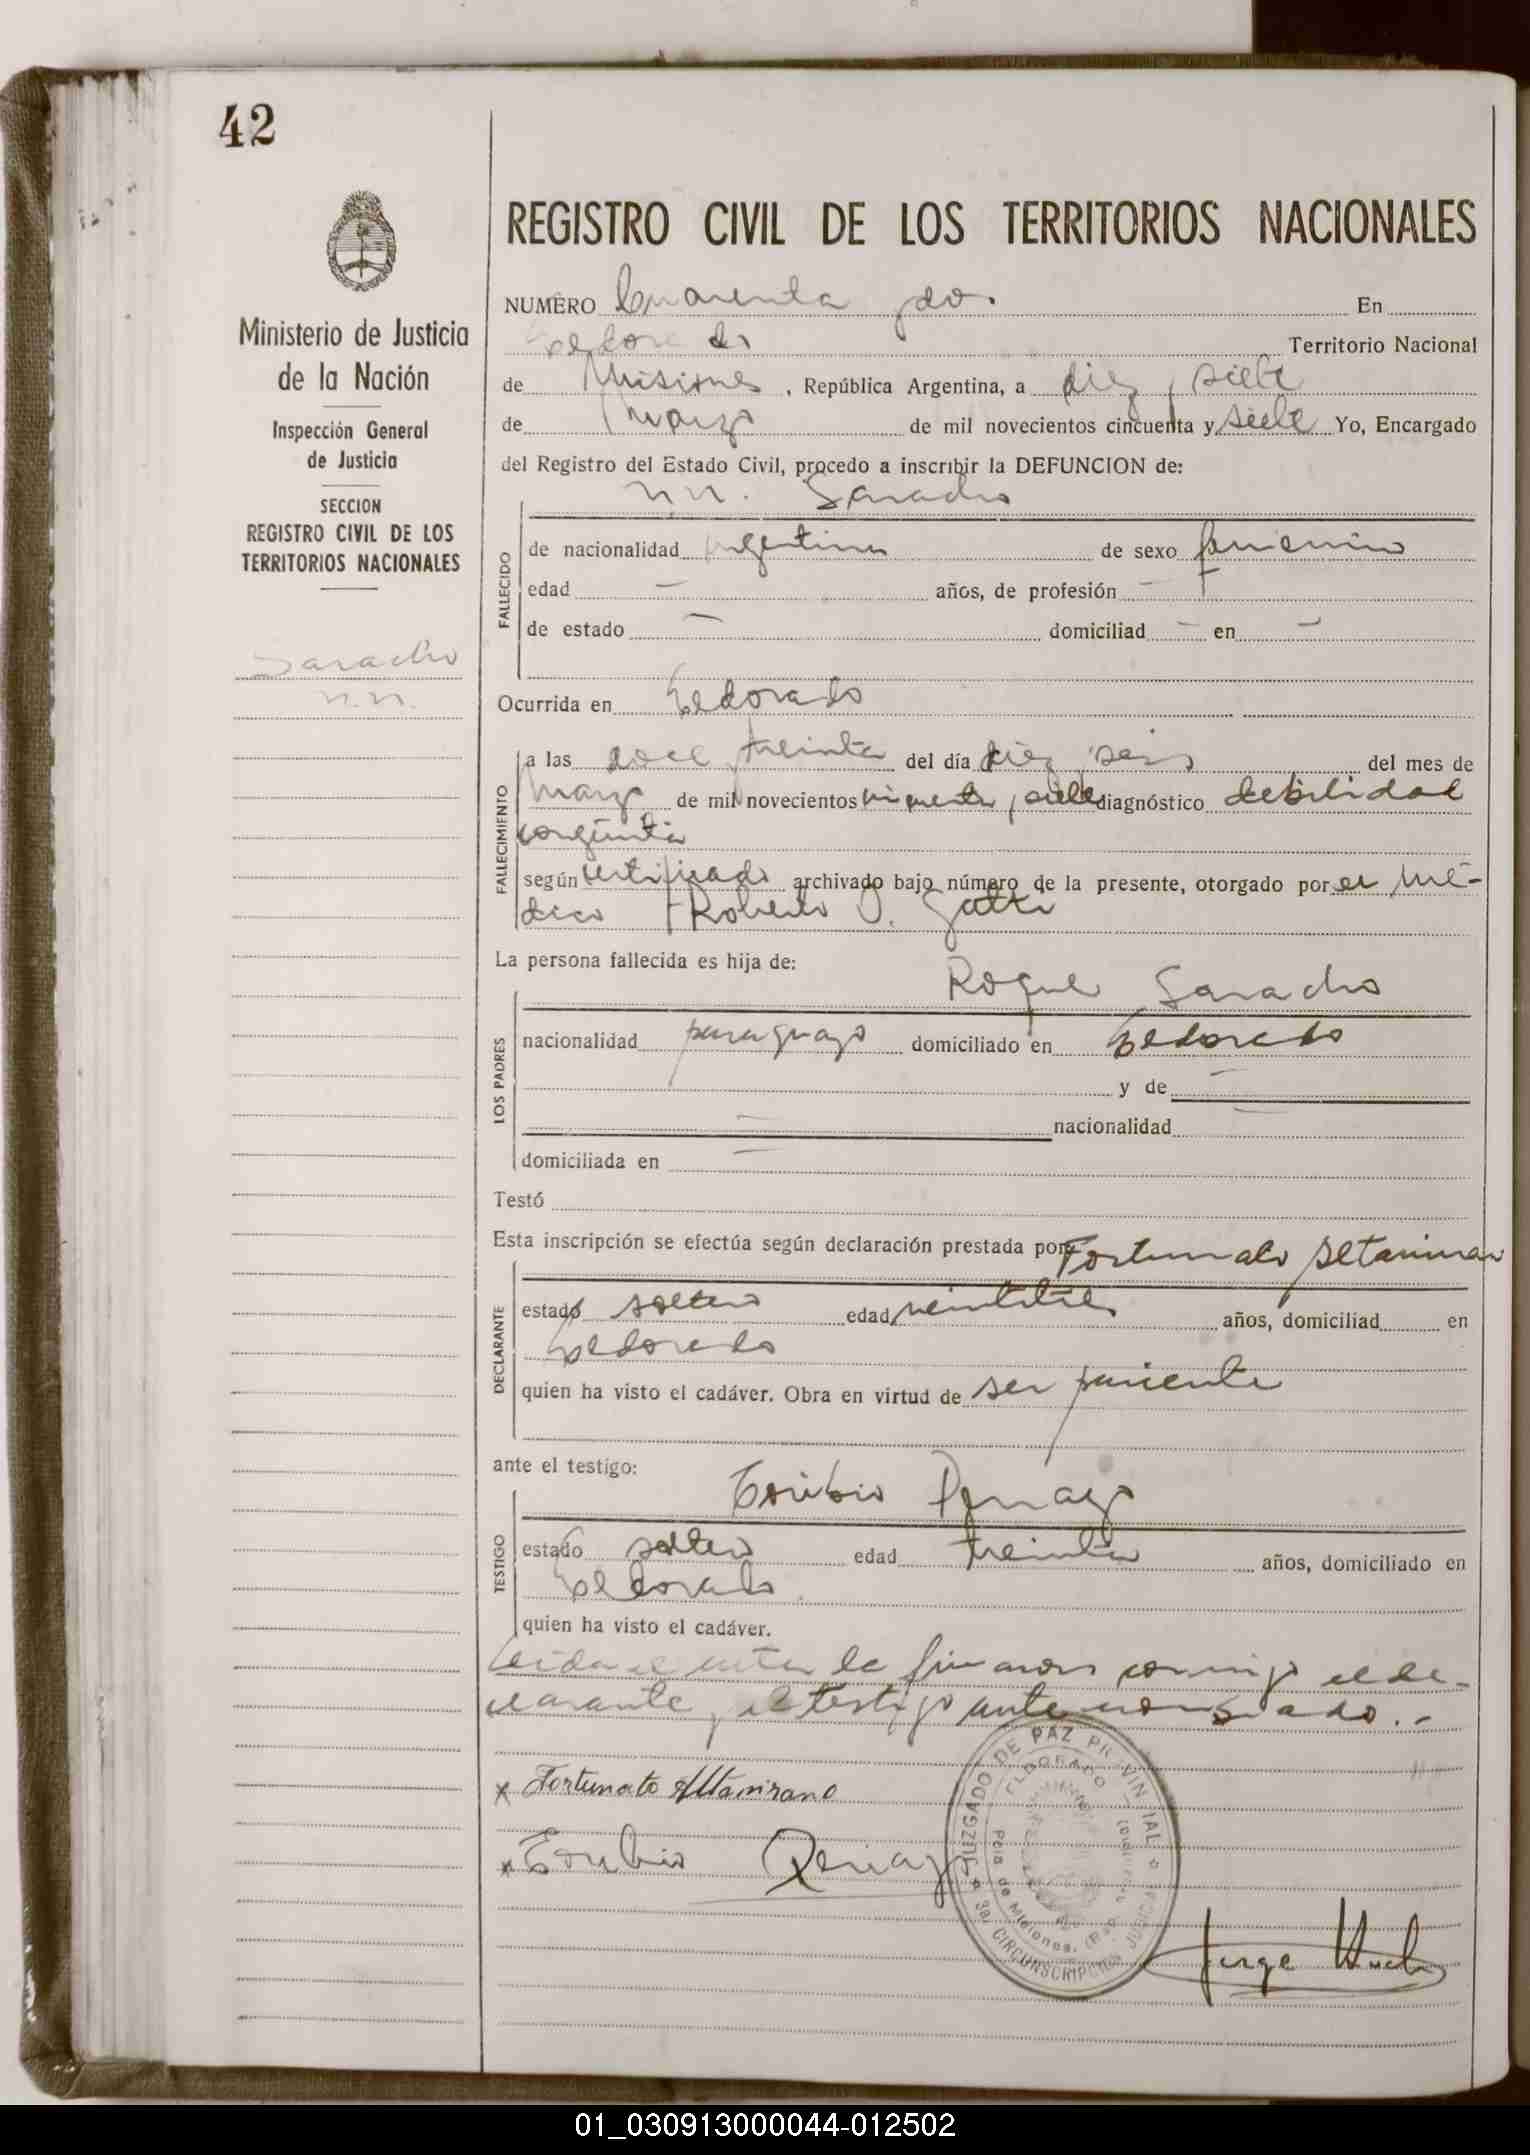 42
Ministerio de Justicia
de la Nación
Inspección General
de Justicia
SECCION
REGISTRO CIVIL DE LOS
TERRITORIOS NACIONALES
Saracho
n.n.
REGISTRO CIVIL DE LOS TERRITORIOS NACIONALES
NUMERO Cuarenta y dos. En
Eldorado Territorio Nacional
de Misiones, República Argentina, a diez y siete
de Marzo de mil novecientos cincuenta y siete Yo, Encargado
del Registro del Estado Civil, procedo a inscribir la DEFUNCION de:
n.n. Saracho
FALLECIDO
de nacionalidad argentina de sexo femenino
edad — años, de profesión —
de estado — domiciliad — en —
Ocurrida en Eldorado
FALLECIMIENTO
a las doce y treinta del día diez y seis del mes de
Marzo de mil novecientos cincuenta y siete diagnóstico debilidad
congénita
según certificado archivado bajo número de la presente, otorgado por el mé-
dico Roberto O. Gatti
La persona fallecida es hija de:
LOS PADRES
Roque Saracho
nacionalidad paraguayo domiciliado en Eldorado
y de —
— nacionalidad —
domiciliada en —
Testó
Esta inscripción se efectúa según declaración prestada por: Fortunato Altamirano
DECLARANTE
estado soltero edad veintitres años, domiciliad en
Eldorado
quien ha visto el cadáver. Obra en virtud de ser pariente
ante el testigo:
TESTIGO
Toribio
estado soltero edad treinta años, domiciliado en
Eldorado.
quien ha visto el cadáver.
Leida el acta la firmaron conmigo el de-
clarante y el testigo antes nombrado.-
x Fortunato Altamirano
x Toribio
JUZGADO DE PAZ PROVINCIAL
ELDORADO
Pcia. de Misiones,
3a. CIRCUNSCRIPCION JUDICIAL
Jorge
01_030913000044-012502